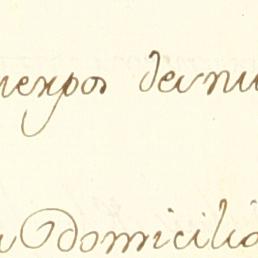 uerpos denu
Domicilio